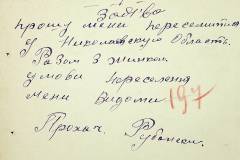 Заява
прошу мени переселитись
У Николаевскую Область.
Разом з жинкою
умови переселеня
мени Видоми
197
Прохач Рубанский.